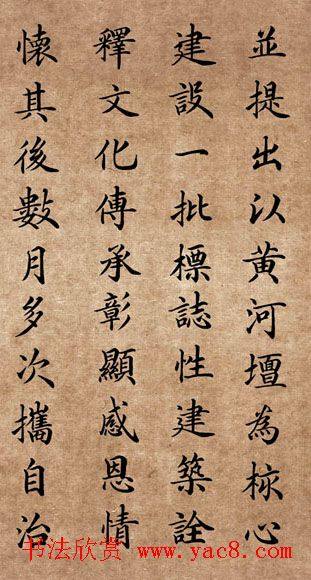 並提出以黄河壇為核心
建設一批標誌性建築詮
釋文化傳承彰顯感恩情
懷其後數月多次攜自治
书法欣赏 www.yac8.com